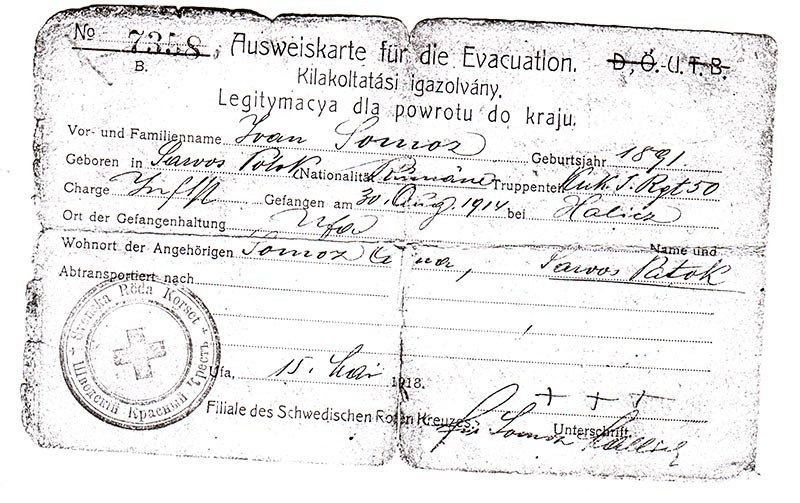 No 7358, Ausweiskarte für die Evacuation. D. Ö. U. T. B.
B. Kilakoltatási igazolvány.
Legitymacya dla powrotu do kraju.
Vor- und Familienname Ivan Somoz Geburtsjahr 1891.
Geboren in Sarvos Patok Nationalität Rumäne Truppenteil kuk. I. Rgt 50
Charge Infst Gefangen am 30. Aug. 1914 bei Halicz
Ort der Gefangenhaltung Ufa
Name und
Wohnort der Angehörigen Somoz, Sarvos Patok
Abtransportiert nach
Svenska Röda Korset
Шведскій Красный Крестъ
Ufa, 15. Mai 1918.
+ + +
Filiale des Schwedischen Roten Kreuzes. Unterschrift.
für Somoz